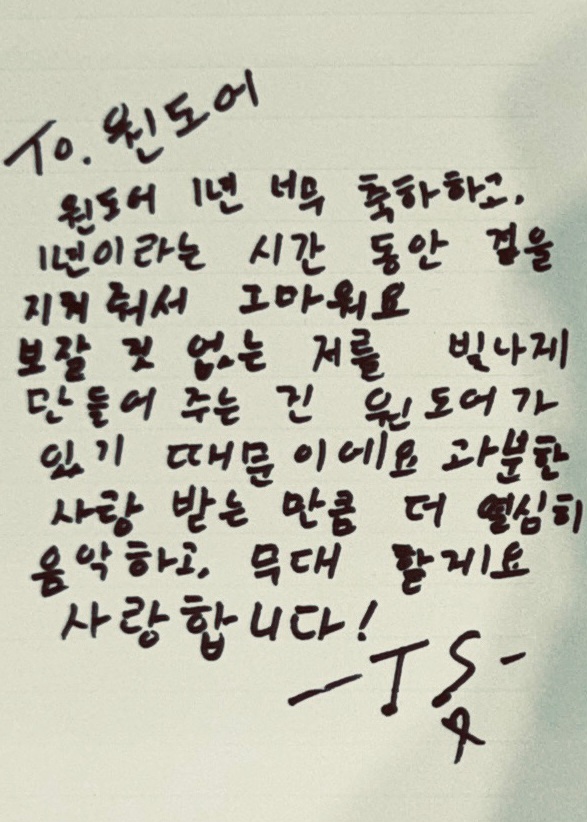 To. 윈도어
윈도어 1년 너무 축하하고,
1년이라는 시간 동안 곁을
지켜 줘서 고마워요
보잘 것 없는 저를 빛나게
만들어 주는 건 윈도어가
있기 때문이에요 과분한
사랑 받는 만큼 더 열심히
음악하고, 무대 할게요
사랑합니다!
-TS-